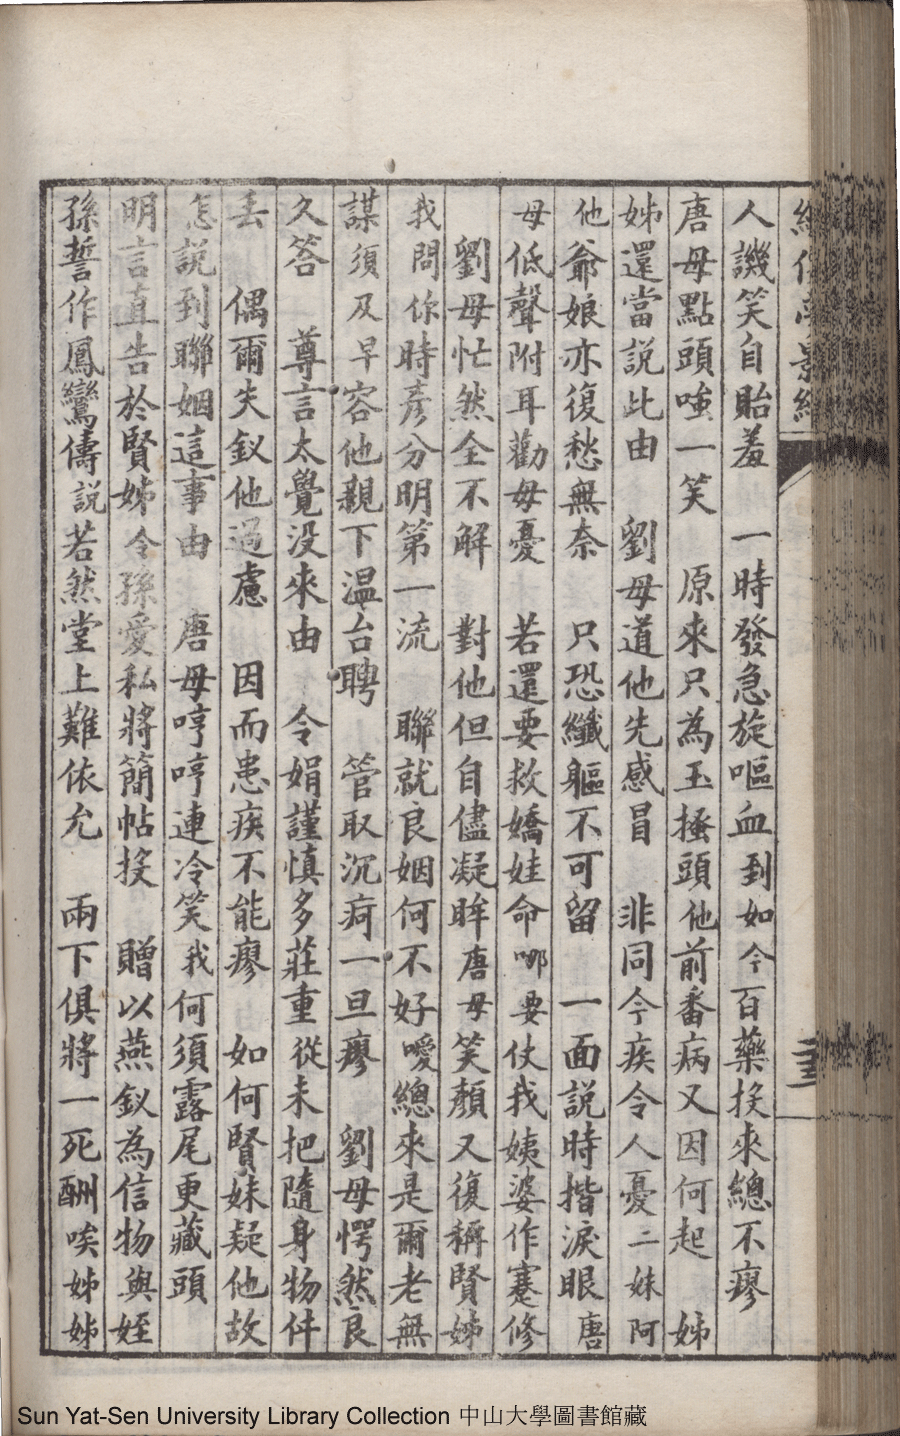 人譏笑自貽羞　一時發急旋嘔血到如今百藥投來總不瘳
唐母點頭嗤一笑　原來只為玉搔頭他前番病又因何起　姊
姊還當説此由　劉母道他先感冒　非同今疾令人憂二妹阿
他爺娘亦復愁無奈　只恐纖軀不可留　一面説時揩淚眼唐
母低聲附耳勸母憂　若還要救嬌娃命哪要仗我姨婆作蹇修
劉母忙然全不解　對他但自儘凝眸唐母笑顏又復稱賢姊
我問你時彥分明第一流　聯就良姻何不好噯總來是爾老無
謀須及早容他親下温台聘　管取沉疴一旦瘳　劉母愕然良
久答　尊言太覺没來由　令娟謹慎多莊重從未把隨身物件
丢　偶爾失釵他過慮　因而患疾不能瘳　如何賢妹疑他故
怎説到聯姻這事由　唐母哼哼連冷笑我何須露尾更藏頭
明言直告於賢姊令孫愛私將簡帖投　贈以燕釵為信物與姪
孫誓作鳳鸞儔説若然堂上難依允　兩下俱將一死酬唉姊姊
Sun Yat-Sen University Library Collection 中山大學圖書館藏